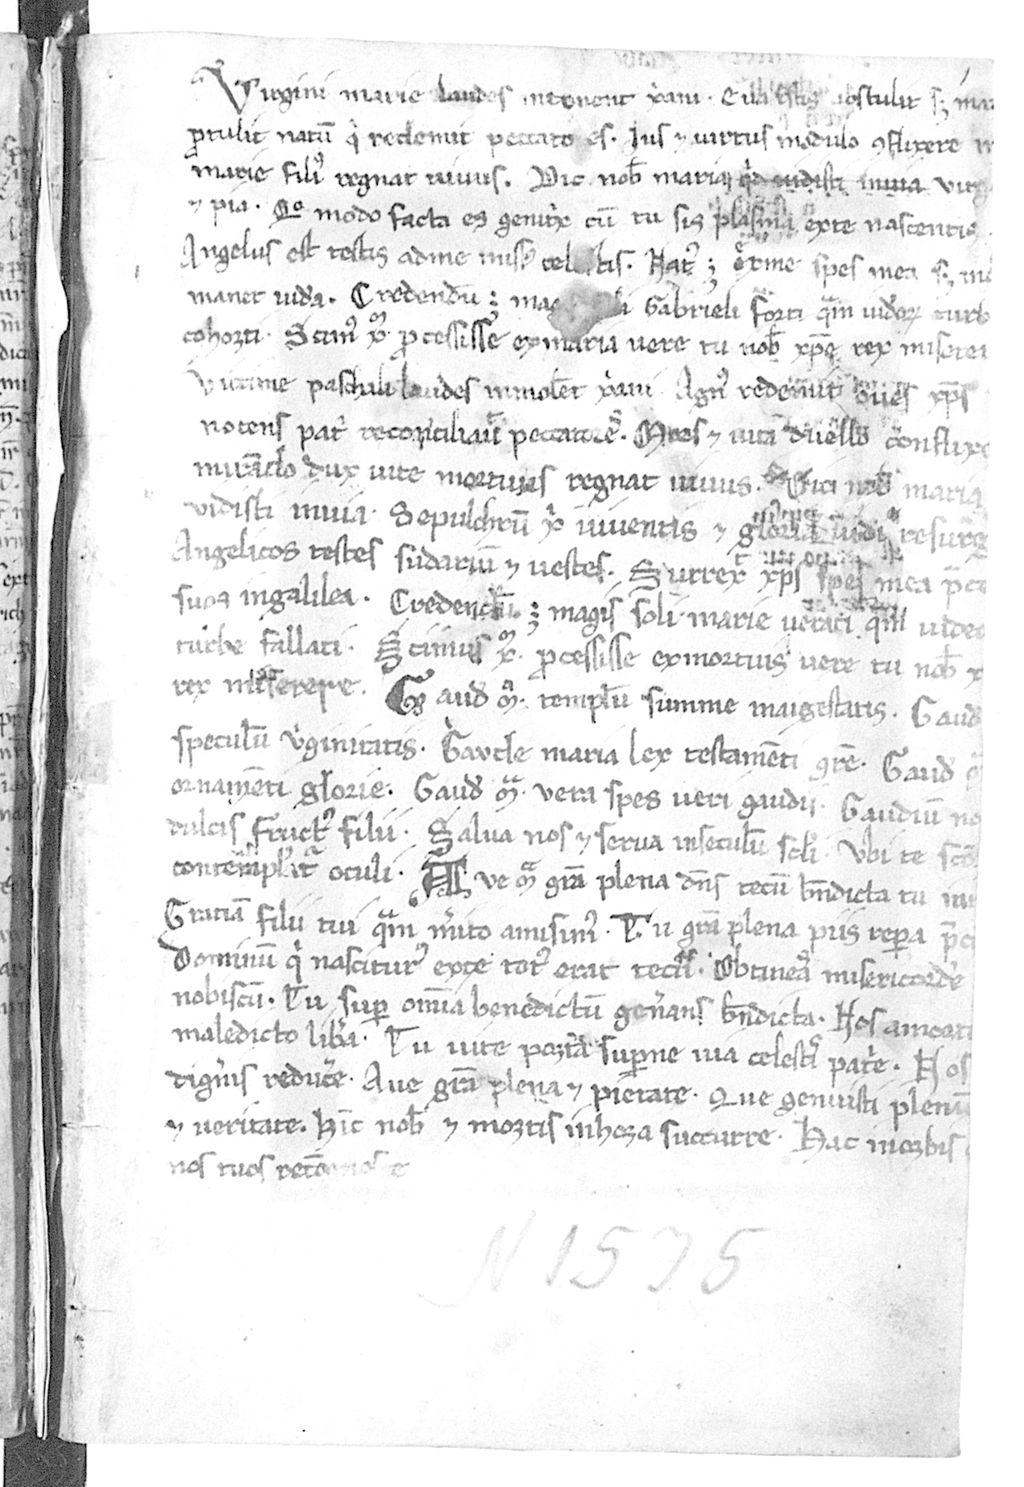 Virgini marie laudes intonent x̄ani. Eva t͛stis abstulit s; mar
ꝓtulit natū q̇ redemit peccatores. Ius ⁊ uirtus modulo ꝯflixere
marie filiꝰ regnat uiuus. Dic nob̄ maria qd uidisti inuia virg
⁊ pia. Qͦ modo facta es genit̍x cū tu sis plasma ex te nascentis.
Angelus est testis ad me missꝰ celestis. Natꝰ ; ex me spes mea s;
manet iuda. Credendū ; magis soli Gabrieli forti qͣm uideoꝝ turb
cohorti. Scimꝰ x̄ ꝓcessisse ex maria uere tu nob̄ xp̄e rex miserer
Victime paschali laudes inmolēt x̄ani Agnꝰ redemit oues xp̄s
nocens pat̍ reconciliauͭ peccatores. Mors ⁊ uita duello conflixe
mirando dux uite mortuus regnat uiuus. Dic nob̄ maria
vidisti inuia. Sepulchrū x̄ uiuentis ⁊ gloriā uidi resurg
Angelicos testes sudariū ⁊ uestes. Surrexͭ xp̄s spes mea p̄ce
suos in galilea. Credendū ; magis soli marie ueraci qͣm iudeo
turbe fallaci. Scimus x̄ ꝓcessisse ex mortuis uere tu nob̄ x
rex miserere. Gaud̄ mͣ. templū summe maigestatis. Gaud̄
speculū v̍ginitatis. Gaude maria lex testamēti gr̄e. Gaud̄ mͣ
ornamēti glorie. Gaud̄ mͣ. vera spes ueri gaudii. Gaudiū no
dulcis fructꝰ filii. Salua nos ⁊ serua in seculū scl̄i. Vbi te
contemplātͬ oculi. Aue mͣ gr̄a plena dn̄s tecū bn̄dicta tu in
Gratiā filii tui qͣm m̍ito amisimꝰ. Tu gr̄a plena piis repara p̄ci
Dominū q̇ nasciturꝰ ex te totꝰ erat tecū. Obtineas misericorde
nobiscū. Tu suꝑ om̄ia benedictū gen̍ans bn̄dicta. Nos a morti
maledicto lib̍a. Tu uite porta suꝑne uia celestis pat̍e. Nos
dign̍is reduc̍e. Aue gr̄a plena ⁊ pietate. Que genuisti plenū
⁊ ueritate. Hīc nob̄ ⁊ mortis in hora succurre. Hac in orbis
nos tuos
N 1575